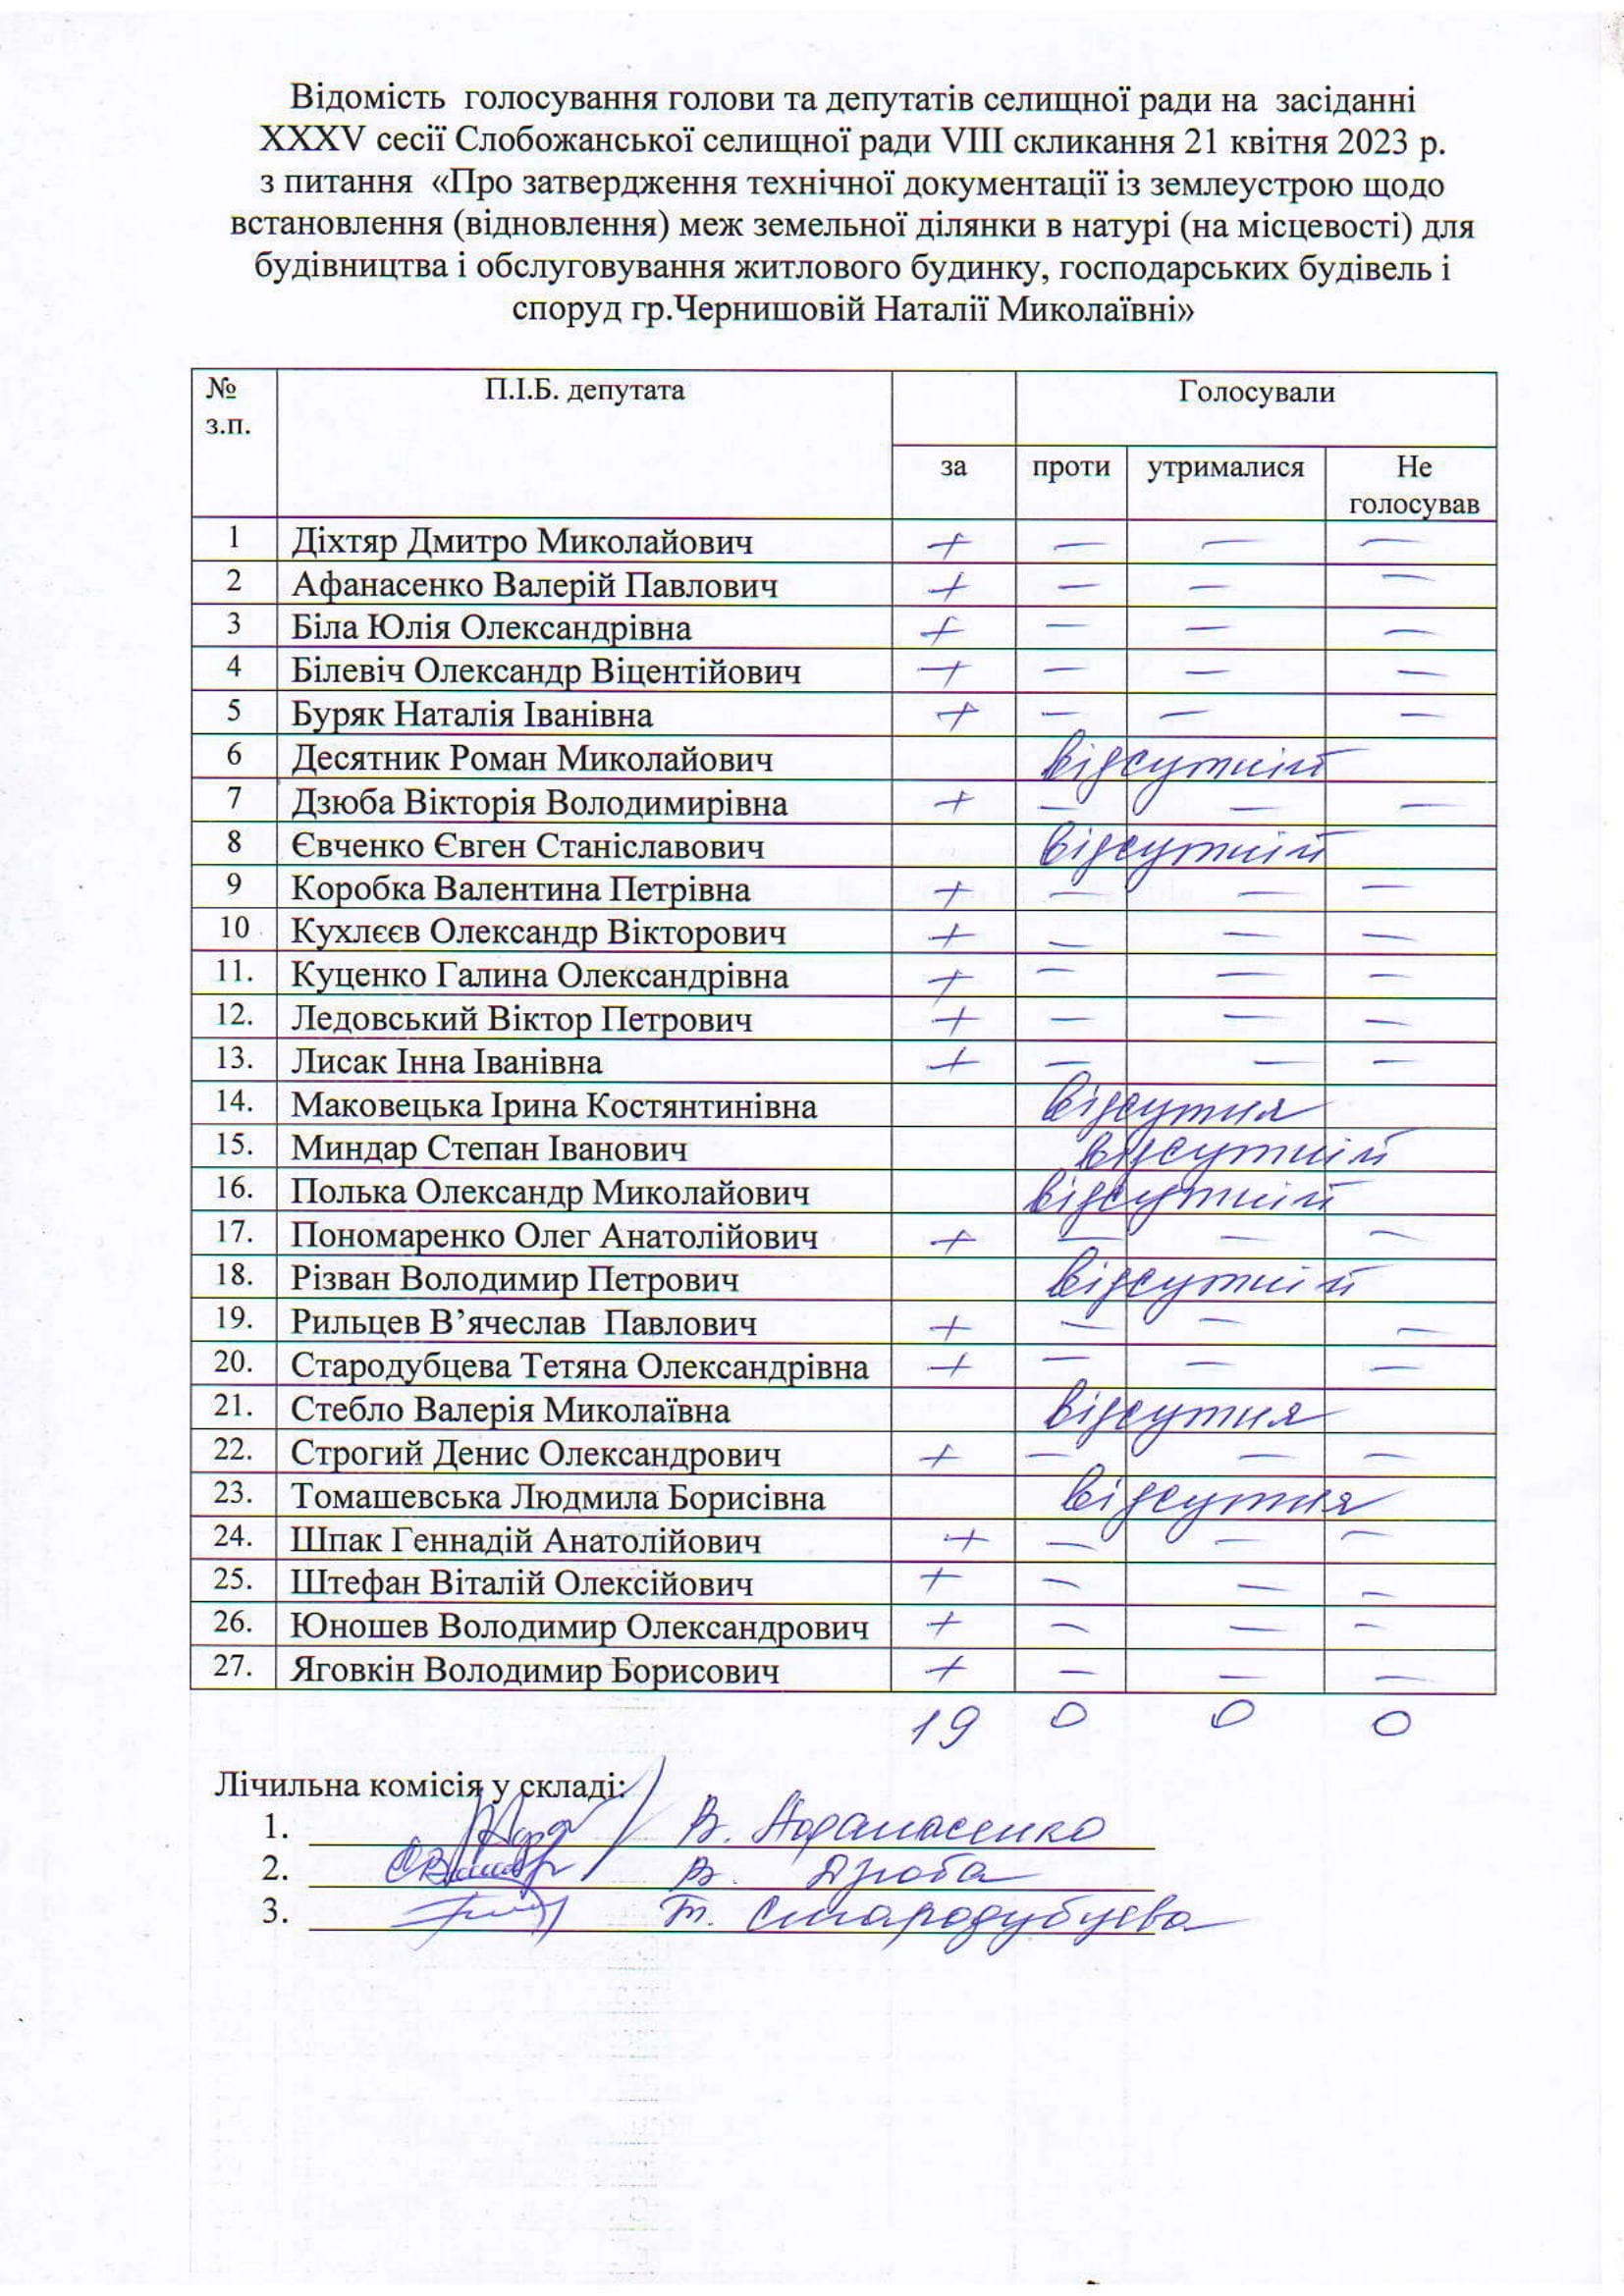 Відомість голосування голови та депутатів селищної ради на засіданні
XXXV сесії Слобожанської селищної ради VIII скликання 21 квітня 2023 р.
з питання «Про затвердження технічної документації із землеустрою щодо
встановлення (відновлення) меж земельної ділянки в натурі (на місцевості) для
будівництва і обслуговування житлового будинку, господарських будівель і
споруд гр.Чернишовій Наталії Миколаївні»
№ з.п. П.І.Б. депутата Голосували
за проти утрималися Не голосував
1 Діхтяр Дмитро Миколайович + — — —
2 Афанасенко Валерій Павлович + — — —
3 Біла Юлія Олександрівна + — — —
4 Білевіч Олександр Віцентійович + — — —
5 Буряк Наталія Іванівна + — — —
6 Десятник Роман Миколайович відсутній
7 Дзюба Вікторія Володимирівна + — — —
8 Євченко Євген Станіславович відсутній
9 Коробка Валентина Петрівна + — — —
10 Кухлєєв Олександр Вікторович + — — —
11. Куценко Галина Олександрівна + — — —
12. Ледовський Віктор Петрович + — — —
13. Лисак Інна Іванівна + — — —
14. Маковецька Ірина Костянтинівна відсутня
15. Миндар Степан Іванович відсутній
16. Полька Олександр Миколайович відсутній
17. Пономаренко Олег Анатолійович + — — —
18. Різван Володимир Петрович відсутній
19. Рильцев В’ячеслав Павлович + — — —
20. Стародубцева Тетяна Олександрівна + — — —
21. Стебло Валерія Миколаївна відсутня
22. Строгий Денис Олександрович + — — —
23. Томашевська Людмила Борисівна відсутня
24. Шпак Геннадій Анатолійович + — — —
25. Штефан Віталій Олексійович + — — —
26. Юношев Володимир Олександрович + — — —
27. Яговкін Володимир Борисович + — — —
19 0 0 0
Лічильна комісія у складі:
1. В. Афанасенко
2. В. Дзюба
3. Т. Стародубцева